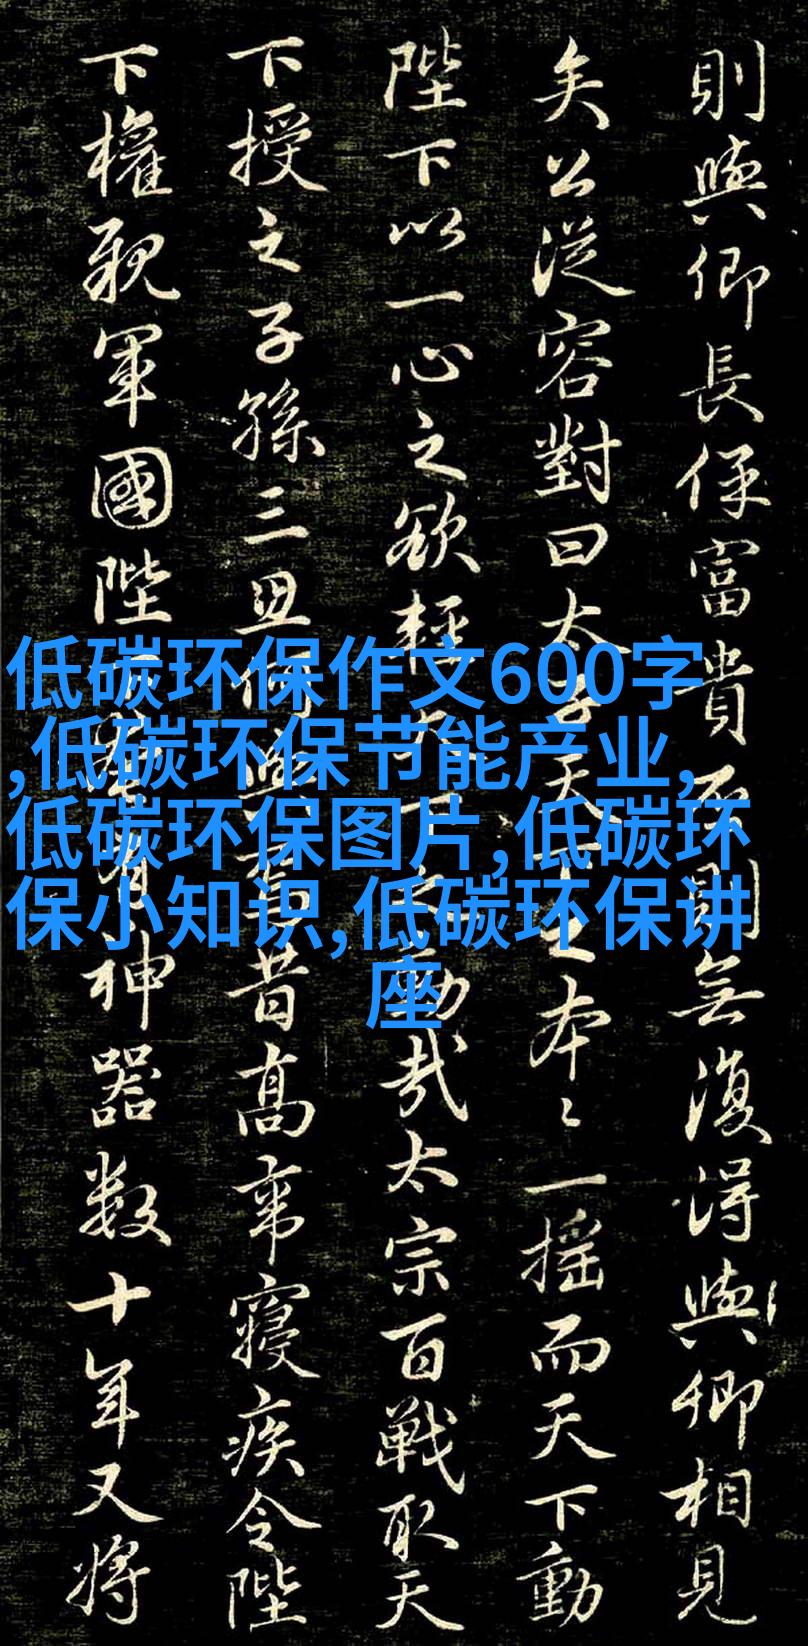 則與卿長保富貴否則無復得與卿相見
矣公從容對曰太子天下之本〻一摇而天下動
陛下以一心之欲輕天下之動哉太宗百戰取天
下授之子孫三昔高宗寢疾令陛
下權親軍國陛有神器數十年又將
低碳环保作文600字
,低碳环保节能产业,
低碳环保图片,低碳环
保小知识,低碳环保讲
座